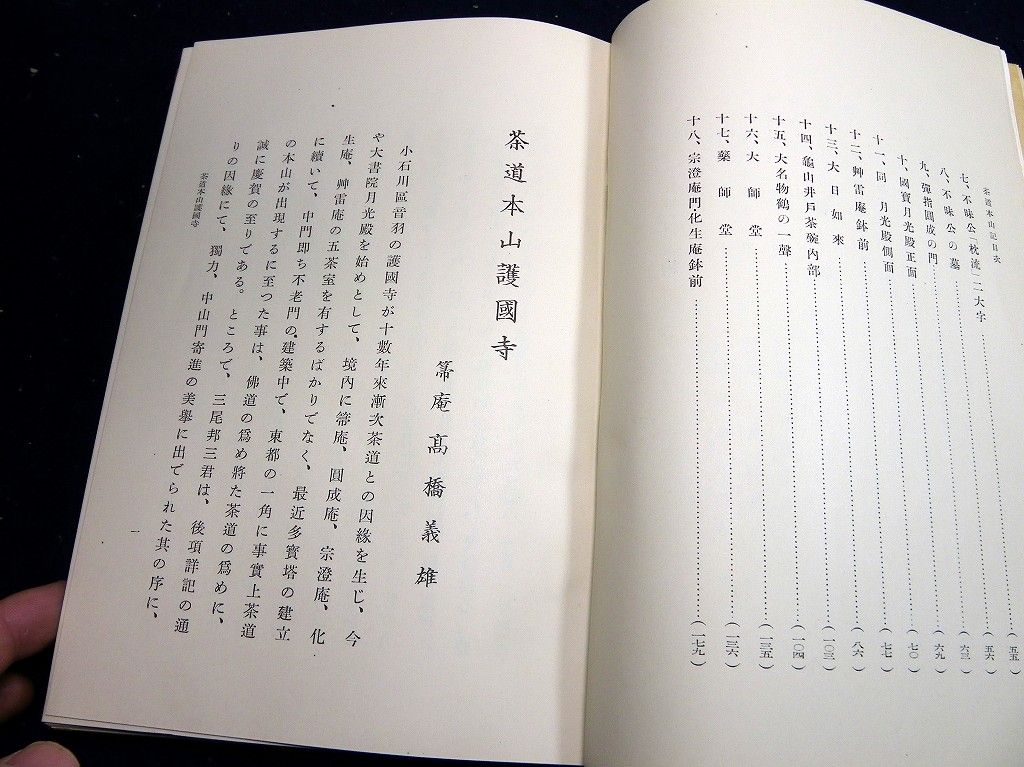 茶道本山記目次
七、不昧公「枕流」二大字………(五五)
八、不昧公の墓………(五六)
九、彈指圓成の門………(六三)
十、國寶月光殿正面………(六九)
十一、同　月光殿側面………(七〇)
十二、艸雷庵鉢前………(七七)
十三、大日如來………(八六)
十四、龜山井戶茶碗內部………(一〇三)
十五、大名物鶴の一聲………(一〇四)
十六、大師堂………(一三五)
十七、藥師堂………(一三六)
十八、宗澄庵門・化生庵鉢前………(一七九)
茶道本山護國寺
箒庵　高橋義雄
小石川區音羽の護國寺が十數年來漸次茶道との因緣を生じ、今
や大書院月光殿を始めとして、境內に箒庵、圓成庵、宗澄庵、化
生庵、艸雷庵の五茶室を有するばかりでなく、最近多寶塔の建立
に續いて、中門卽ち不老門の建築中で、東都の一角に事實上茶道
の本山が出現するに至つた事は、佛道の爲め將た茶道の爲めに、
誠に慶賀の至りである。ところで、三尾邦三君は、後項詳記の通
りの因緣にて、獨力、中山門寄進の美擧に出でられた其の序に、
茶道本山護國寺
一